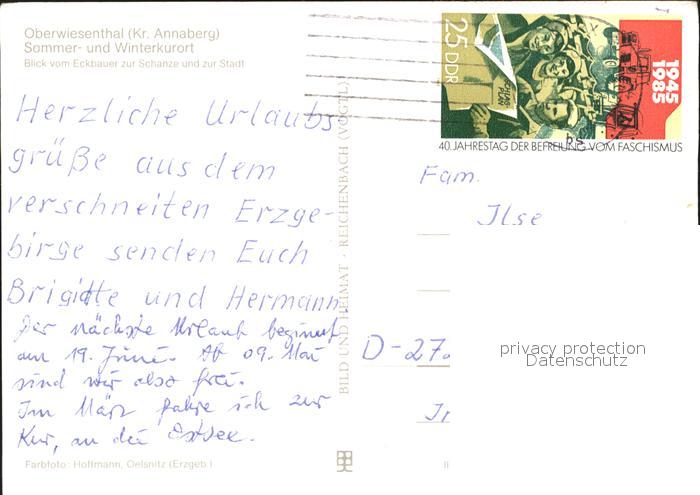 Oberwiesenthal (Kr. Annaberg)
Sommer- und Winterkurort
Blick vom Eckbauer zur Schanze und zur Stadt
Herzliche Urlaubs-
grüße aus dem
verschneiten Erzge-
birge senden Euch
Brigitte und Hermann.
Der nächste Urlaub beginnt
am 19. Juni. Ab 09. Mai
sind wir also frei.
Im März fahre ich zur
Kur, an die Ostsee.
Farbfoto: Hoffmann, Oelsnitz (Erzgeb.)
BILD UND HEIMAT · REICHENBACH (VOGTL)
25 DDR
1945
1985
40. JAHRESTAG DER BEFREIUNG VOM FASCHISMUS
Fam.
Ilse
D-27
privacy protection
Datenschutz